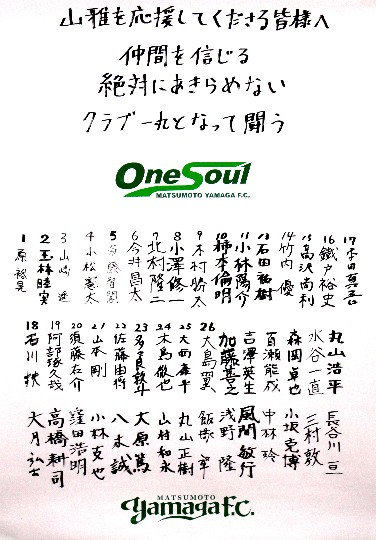 山雅を応援してくださる皆様へ
仲間を信じる
絶対にあきらめない
クラブ一丸となって闘う
One Soul
MATSUMOTO YAMAGA F.C.
1 原 裕晃
2 玉林睦実
3 山崎 透
4 小松憲太
5 須藤右介
6 今井昌太
7 北村隆二
8 小澤修一
9 木村勝太
10 柿本倫明
11 小林陽介
13 石田祐樹
14 竹内 優
15 高沢尚利
16 鐵戸裕史
17 本田真吾
18 石川 扶
19 阿部琢久哉
20 須藤右介
21 山本 剛
22 佐藤由将
23 多々良敦斗
24 木島徹也
25 大西康平
26 大島 翼
加藤善之
吉澤英生
百瀬能成
森岡卓也
水谷一直
丸山浩平
大月弘士
高橋耕司
窪田浩明
小林克也
八木 誠
大原 篤
山村和永
丸山正樹
飯塚 章
浅野 隆
風間敏行
中林 玲
小坂克博
三村 敦
長谷川 亘
MATSUMOTO
Yamaga F.C.